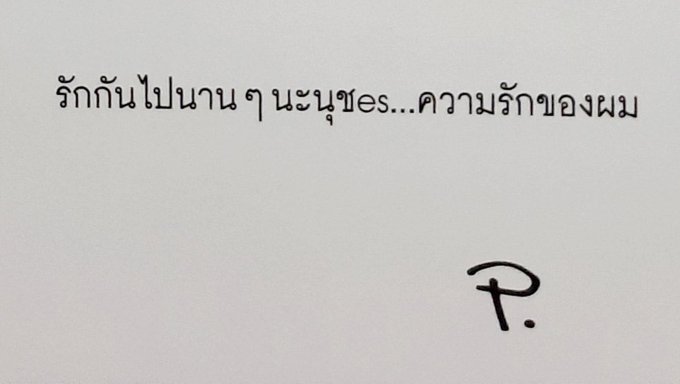 รักกันไปนาน ๆ นะนุชes...ความรักของผม
P.